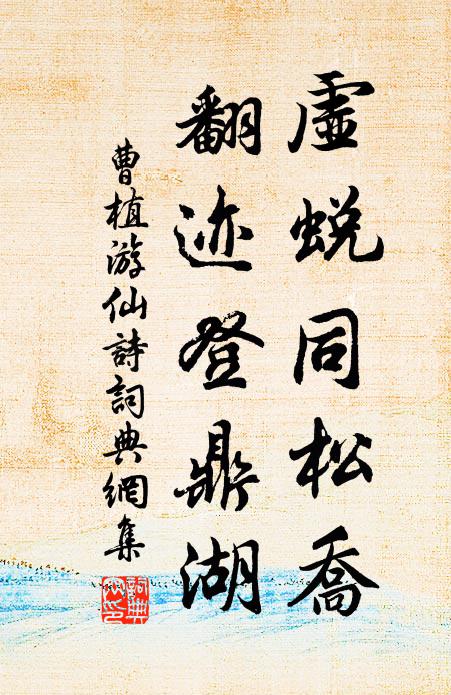 虛蛻同松喬
翻迹登鼎湖
曹植游仙詩詞典網集